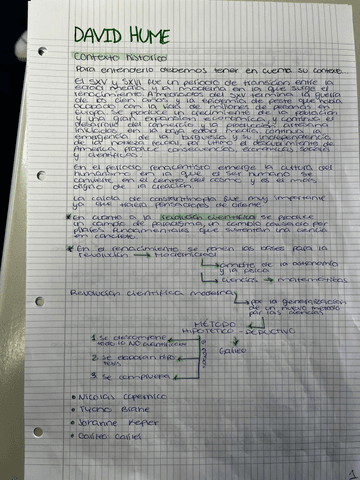 DAVID HUME
Contexto histórico
Para entenderlo debemos tener en cuenta su contexto.
El SXV y SXVI fue un período de transición entre la
edad media y la moderna en la que surge el
renacimiento. A mediados del SXV termina la guerra
de los cien años y la epidemia de peste que había
acabado con la vida de millones de personas en
Europa. Se produce un crecimiento de la población
y una gran expansión económica, y continúa el
desarrollo del comercio y la producción artesana
iniciados en la baja edad media, continúa la
emergencia de la burguesía y su independencia
de la nobleza feudal por último el descubrimiento de
América produce consecuencias, económicas, sociales
y científicas.
En el período renacentista emerge la cultura del
humanismo en la que el ser humano se
convierte en el centro del cosmos y es el más
digno de la creación.
La caída de constantinopla fue muy importante
ya que hasta pensadores de oriente.
En cuanto a la revolución científica se produce
un cambio de paradigma, un cambio consiste en
pilares fundamentales que sustentan una ciencia
en concreto.
En el renacimiento se ponen las bases para la
revolución
ámbito de la astronomía
y la física
ciencias matemáticas
Revolución científica moderna
por la generalización
de un nuevo método
por las ciencias
MÉTODO
HIPOTÉTICO - DEDUCTIVO
Galileo
1. Se
2. Se elaboran hipó
tesis
3. Se comprueba
Nicolás Copérnico
Tycho Brahe
Johanne Kepler
Galileo Galilei
1